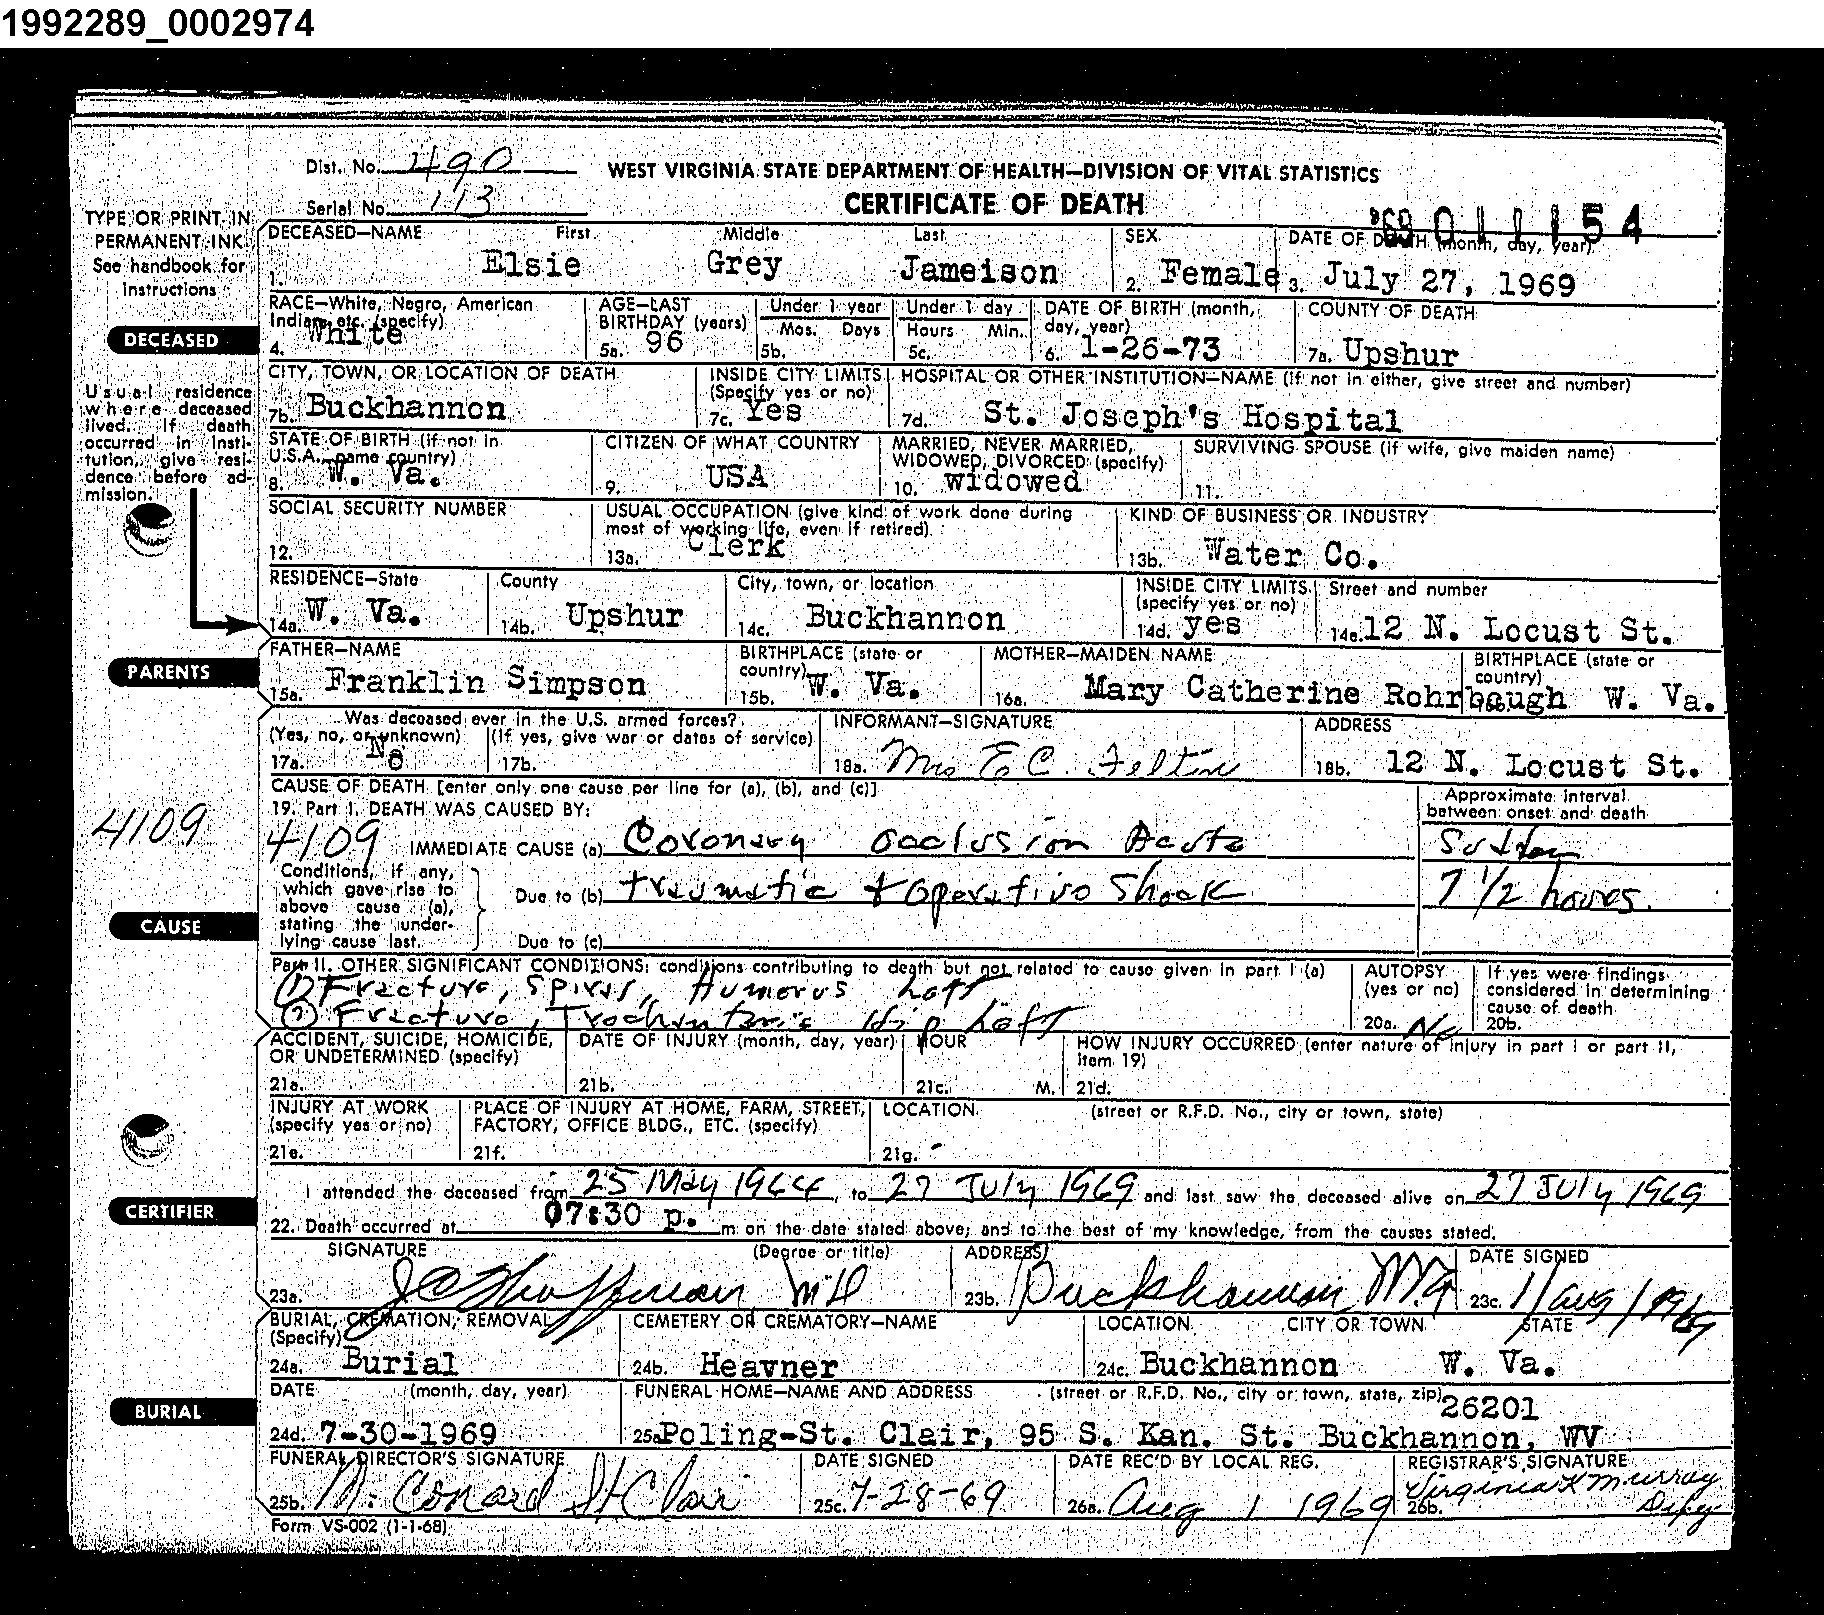 1992289_0002974
Dist. No. 490
WEST VIRGINIA STATE DEPARTMENT OF HEALTH—DIVISION OF VITAL STATISTICS
Serial No. 113
CERTIFICATE OF DEATH
'69 011154
TYPE OR PRINT IN
PERMANENT INK
See handbook for
instructions
DECEASED—NAME First Middle Last SEX DATE OF DEATH (month, day, year)
1. Elsie Grey Jameison 2. Female 3. July 27, 1969
RACE—White, Negro, American
Indian, etc. (specify)
4. White
AGE—LAST
BIRTHDAY (years)
5a. 96
Under 1 year
Mos. Days
5b.
Under 1 day
Hours Min.
5c.
DATE OF BIRTH (month,
day, year)
6. 1-26-73
COUNTY OF DEATH
7a. Upshur
DECEASED
Usual residence
where deceased
lived. If death
occurred in insti-
tution, give resi-
dence before ad-
mission.
CITY, TOWN, OR LOCATION OF DEATH
7b. Buckhannon
INSIDE CITY LIMITS
(Specify yes or no)
7c. Yes
HOSPITAL OR OTHER INSTITUTION—NAME (if not in either, give street and number)
7d. St. Joseph's Hospital
STATE OF BIRTH (if not in
U.S.A., name country)
8. W. Va.
CITIZEN OF WHAT COUNTRY
9. USA
MARRIED, NEVER MARRIED,
WIDOWED, DIVORCED (specify)
10. Widowed
SURVIVING SPOUSE (if wife, give maiden name)
11.
SOCIAL SECURITY NUMBER
12.
USUAL OCCUPATION (give kind of work done during
most of working life, even if retired)
13a. Clerk
KIND OF BUSINESS OR INDUSTRY
13b. Water Co.
RESIDENCE—State
14a. W. Va.
County
14b. Upshur
City, town, or location
14c. Buckhannon
INSIDE CITY LIMITS
(specify yes or no)
14d. yes
Street and number
14e. 12 N. Locust St.
PARENTS
FATHER—NAME
15a. Franklin Simpson
BIRTHPLACE (state or
country)
15b. W. Va.
MOTHER—MAIDEN NAME
16a. Mary Catherine Rohrbaugh
BIRTHPLACE (state or
country)
16b. W. Va.
Was deceased ever in the U.S. armed forces?
(Yes, no, or unknown) (If yes, give war or dates of service)
17a. No 17b.
INFORMANT—SIGNATURE
18a. Mrs E. C. Felton
ADDRESS
18b. 12 N. Locust St.
CAUSE OF DEATH [enter only one cause per line for (a), (b), and (c)]
19. Part I. DEATH WAS CAUSED BY:
Approximate interval
between onset and death
4109
4109 IMMEDIATE CAUSE (a) Coronary occlusion Acute Sudden
Conditions, if any,
which gave rise to
above cause (a),
stating the under-
lying cause last.
Due to (b) traumatic + Operative Shock 7 1/2 hours.
Due to (c)
CAUSE
Part II. OTHER SIGNIFICANT CONDITIONS: conditions contributing to death but not related to cause given in part I (a)
(1) Fracture, Spiral, Humerus Left
(2) Fracture, Trochanteric Hip Left
AUTOPSY
(yes or no)
20a. No
If yes were findings
considered in determining
cause of death
20b.
ACCIDENT, SUICIDE, HOMICIDE,
OR UNDETERMINED (specify)
21a.
DATE OF INJURY (month, day, year)
21b.
HOUR
21c. M.
HOW INJURY OCCURRED (enter nature of injury in part I or part II,
item 19)
21d.
INJURY AT WORK
(specify yes or no)
21e.
PLACE OF INJURY AT HOME, FARM, STREET,
FACTORY, OFFICE BLDG., ETC. (specify)
21f.
LOCATION (street or R.F.D. No., city or town, state)
21g.
CERTIFIER
I attended the deceased from 25 May 1964 to 27 July 1969 and last saw the deceased alive on 27 July 1969
22. Death occurred at 07:30 p. m on the date stated above; and to the best of my knowledge, from the causes stated.
SIGNATURE (Degree or title)
23a. J C Huffman MD
ADDRESS
23b. Buckhannon W.Va
DATE SIGNED
23c. 1 Aug 1969
BURIAL, CREMATION, REMOVAL
(Specify)
24a. Burial
CEMETERY OR CREMATORY—NAME
24b. Heavner
LOCATION CITY OR TOWN STATE
24c. Buckhannon W. Va.
BURIAL
DATE (month, day, year)
24d. 7-30-1969
FUNERAL HOME—NAME AND ADDRESS (street or R.F.D. No., city or town, state, zip)
26201
25a. Poling-St. Clair, 95 S. Kan. St. Buckhannon, WV
FUNERAL DIRECTOR'S SIGNATURE
25b. M. Conard St Clair
DATE SIGNED
25c. 7-28-69
DATE REC'D BY LOCAL REG.
26a. Aug 1 1969
REGISTRAR'S SIGNATURE
26b. Virginia K Murray
Dpy
Form VS-002 (1-1-68)